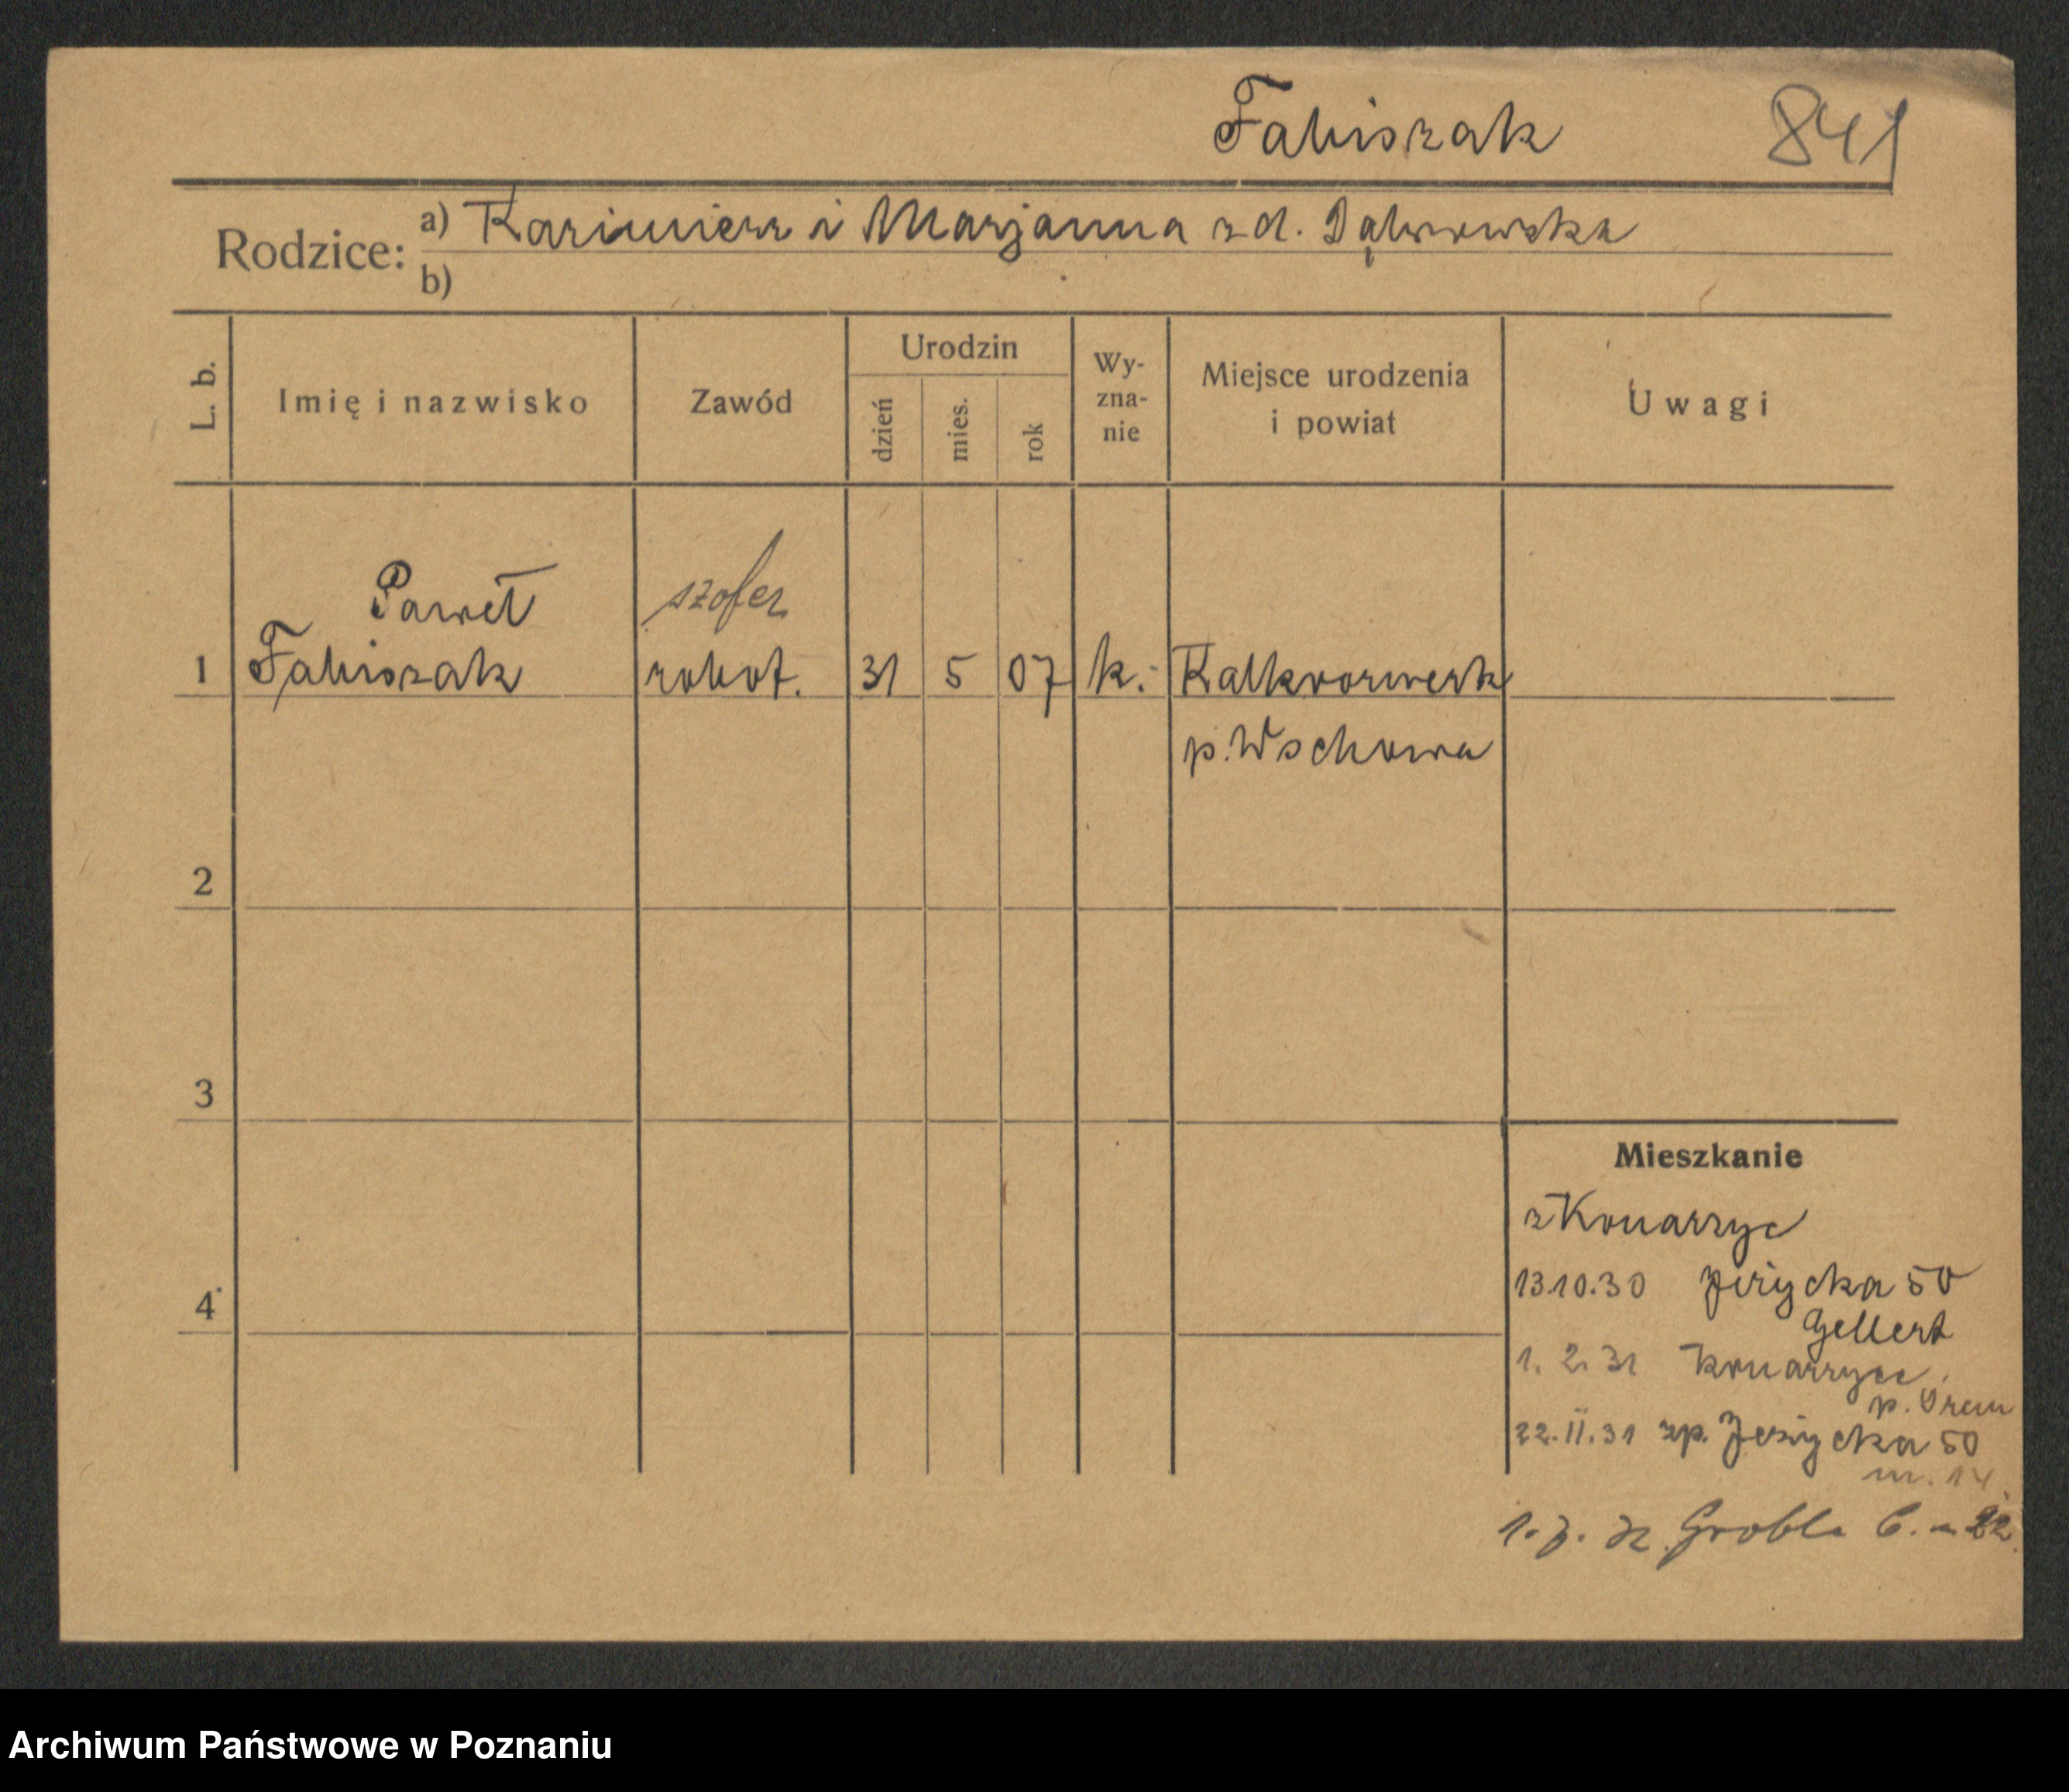 Fabiszak 841
Rodzice: a) Kazimierz i Marjanna z d. Dąbrowska
b)
L. b. Imię i nazwisko Zawód Urodzin dzień mies. rok Wyznanie Miejsce urodzenia i powiat Uwagi
Paweł szofer
1 Fabiszak robot. 31 5 07 k. Kalkvorwerk
p. Wschowa
2
3
Mieszkanie
z Konarzyc
13.10.30 Jeżycka 50
Gellert
4
1. 2. 31 Konarzyce
p. Śrem
22.II.31 zp. Jeżycka 50
m. 14
Grobla 6. m 22.
Archiwum Państwowe w Poznaniu